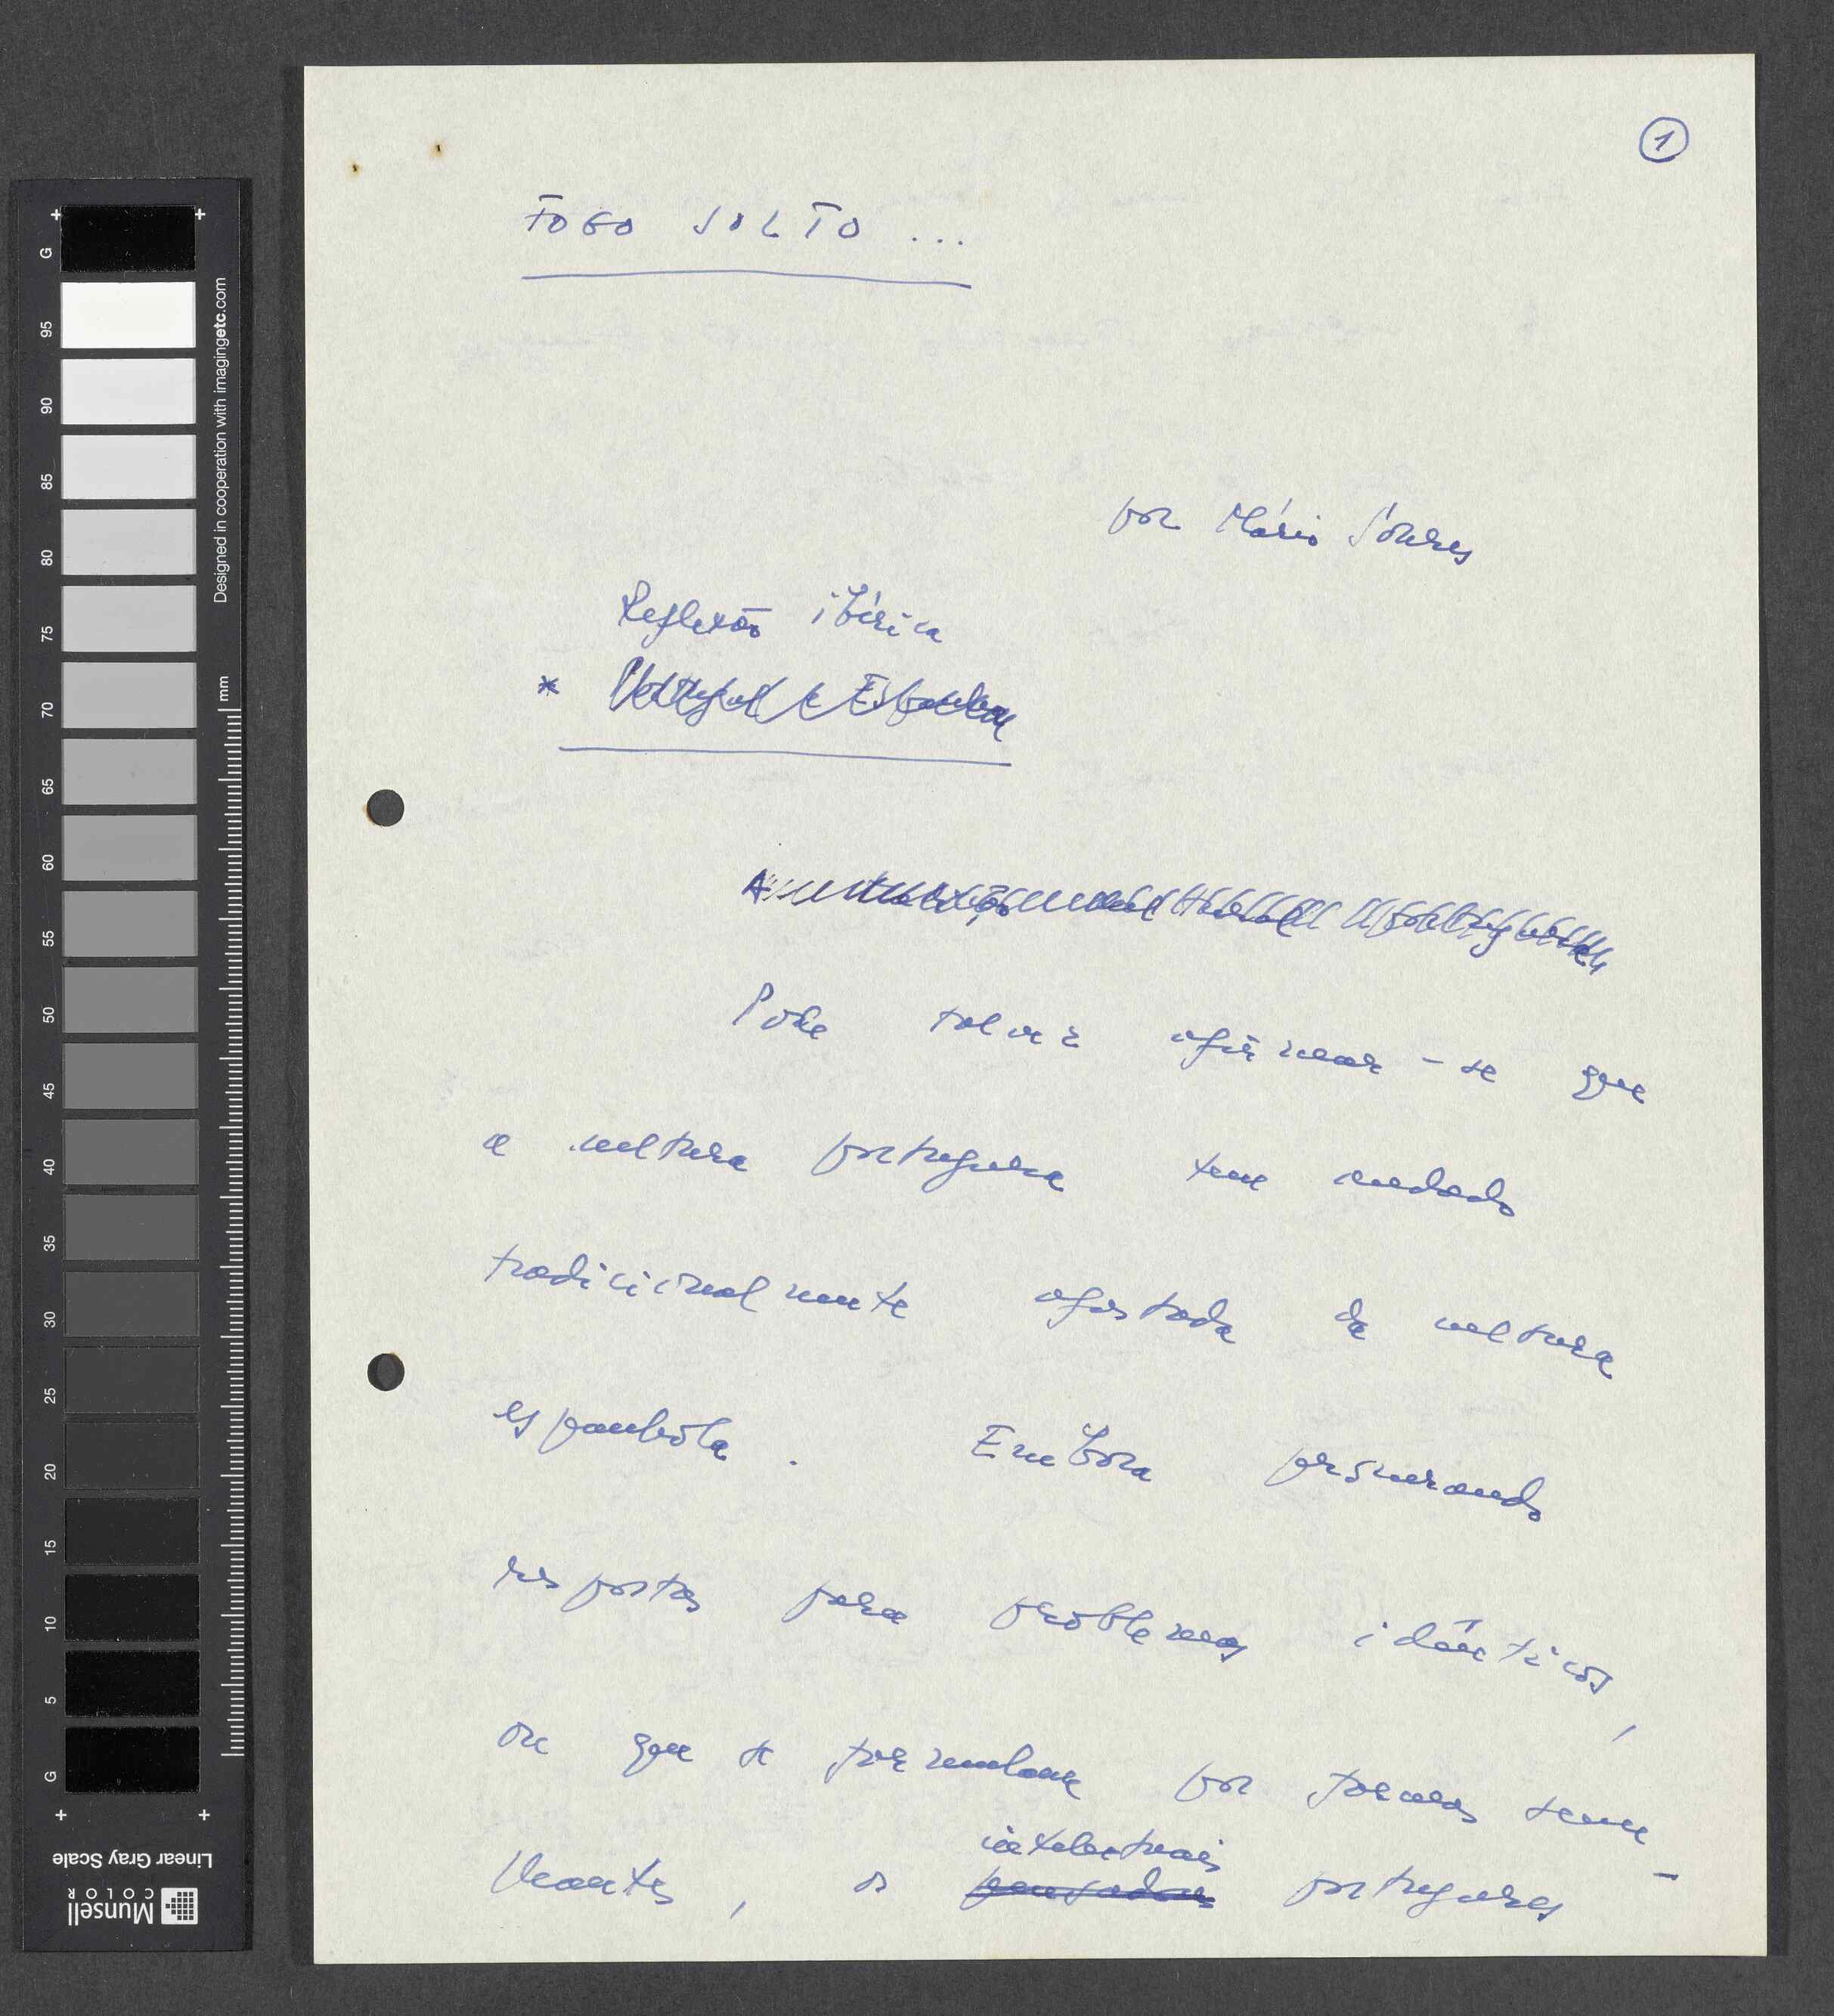 1
FOGO SOLTO ...
por Mário Soares
Reflexão ibérica
* Portugal e Espanha
Pode talvez afirmar-se que
a cultura portuguesa tem andado
tradicionalmente afastada da cultura
espanhola. Embora procurando
respostas para problemas idênticos,
ou que se formulam por formas seme-
intelectuais
lhantes, os pensadores portugueses
G
95
90
85
80
75
70
65
60
55
50
45
40
35
30
25
20
15
10
5
G
mm
Designed in cooperation with imagingetc.com
Munsell
COLOR
Linear Gray Scale